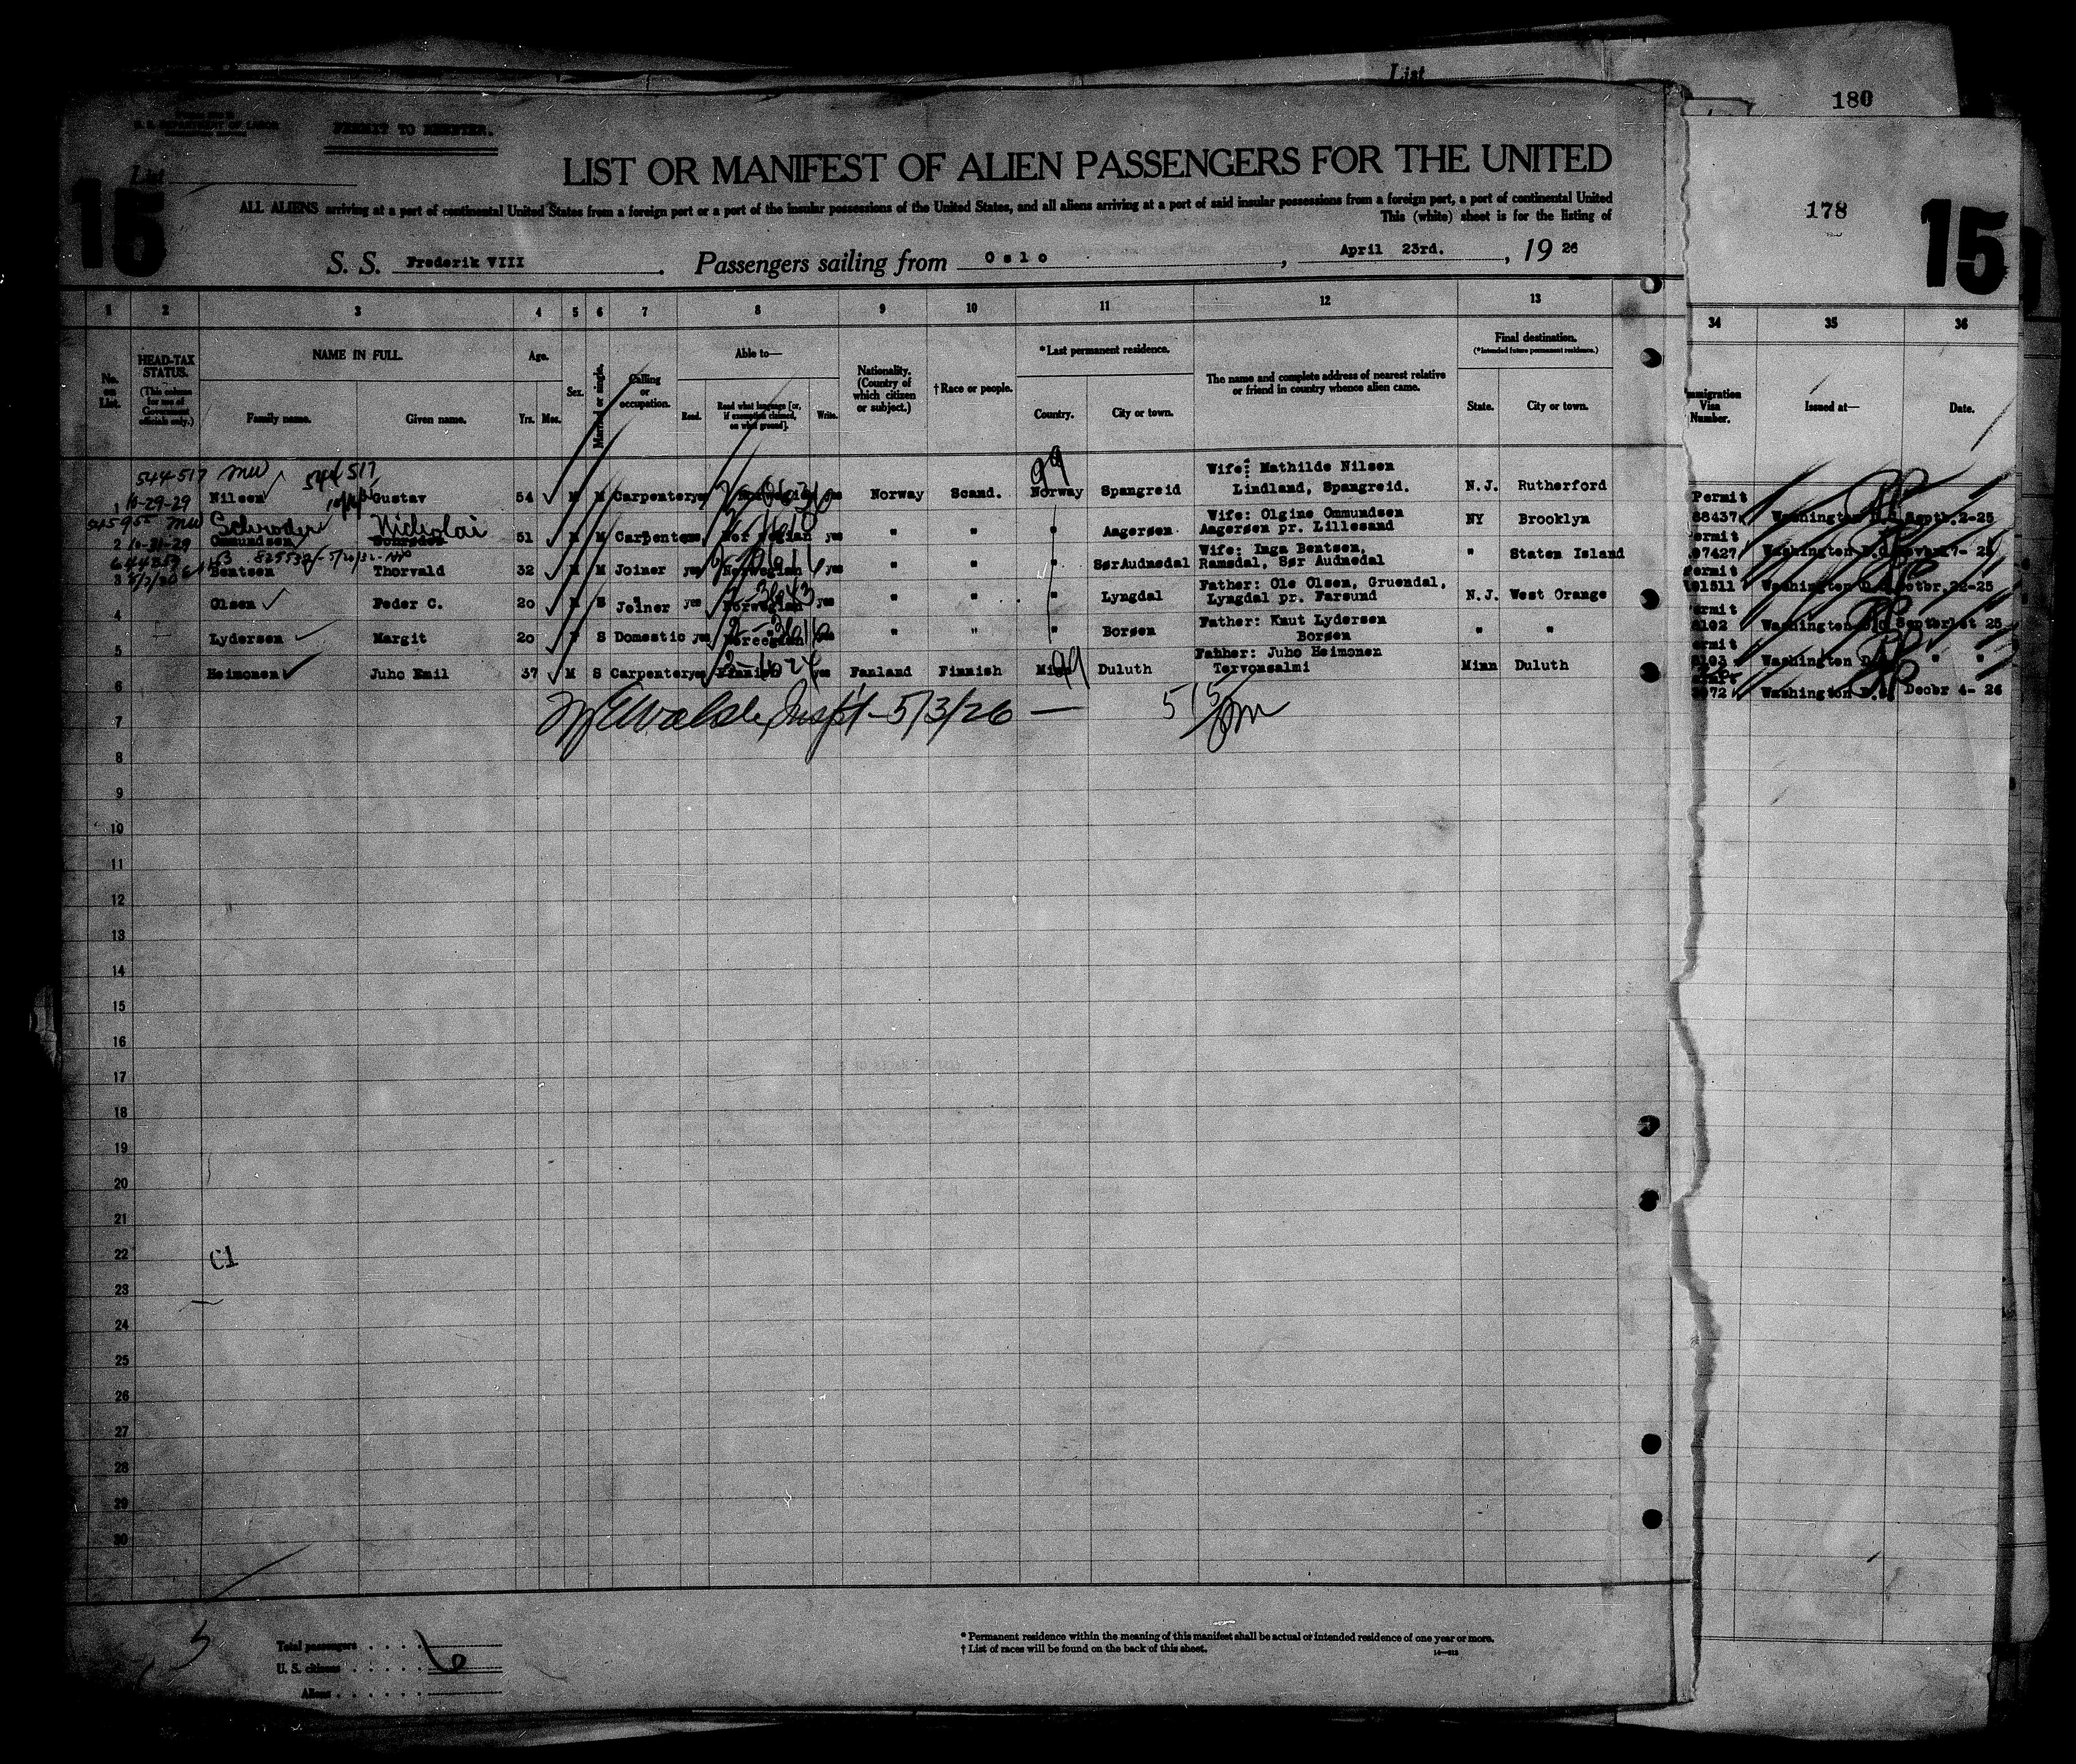 List
180
U. S. DEPARTMENT OF LABOR
PERMIT TO REENTER.
List
15
LIST OR MANIFEST OF ALIEN PASSENGERS FOR THE UNITED
178
15
ALL ALIENS arriving at a port of continental United States from a foreign port or a port of the insular possessions of the United States, and all aliens arriving at a port of said insular possessions from a foreign port, a port of continental United
This (white) sheet is for the listing of
S. S. Frederik VIII. Passengers sailing from Oslo, April 23rd., 1926
1 2 3 4 5 6 7 8 9 10 11 12 13 34 35 36
No. on List.
HEAD-TAX STATUS. (This column for use of Government officials only.)
NAME IN FULL.
Family name. Given name.
Age. Yrs. Mos.
Sex.
Married or single.
Calling or occupation.
Able to—
Read. Read what language [or, if exemption claimed, on what ground]. Write.
Nationality. (Country of which citizen or subject.)
† Race or people.
* Last permanent residence.
Country. City or town.
The name and complete address of nearest relative or friend in country whence alien came.
Final destination. (*Intended future permanent residence.)
State. City or town.
Immigration Visa Number.
Issued at—
Date.
544-517 MW 544517
1 10-29-29 Nilsen Gustav 54 M M Carpenter yes Norwegian yes Norway Scand. Norway 99 Spangreid Wife: Mathilde Nilsen Lindland, Spangreid. N.J. Rutherford Permit 88437 Washington D.C. Septb. 2-25
Schroder Nicholai
2 10-31-29 Ommundsen Schroder 51 M M Carpenter yes Norwegian yes " " " Aagersøn Wife: Olgine Ommundsen Aagersøn pr. Lillesand NY Brooklyn Permit 97427 Washington D.C.
825532 - 5/20/32
3 Bentsen Thorvald 32 M M Joiner yes Norwegian yes " " " SørAudnedal Wife: Inga Bentsen, Ramsdal, Sør Audnedal " Staten Island Permit 91511 Washington D.C. Octbr. 22-25
4 Olsen Peder C. 20 M S Joiner yes Norwegian yes " " " Lyngdal Father: Ole Olsen, Gruendal, Lyngdal pr. Farsund N.J. West Orange Permit Washington D.C. Septbr 1st 25
5 Lydersen Margit 20 F S Domestic yes Norwegian yes " " " Borsøn Father: Knut Lydersen Borsøn " " Permit Washington D.C. " "
6 Heimonen Juho Emil 37 M S Carpenter yes Finnish yes Fanland Finnish Minn 99 Duluth Fahher: Juho Heimonen Tervonsalmi Minn Duluth Permit Washington D.C. Decbr 4- 26
Insp't - 5/3/26 — 515 pm
7
8
9
10
11
12
13
14
15
16
17
18
19
20
21
22 C1
23
24
25
26
27
28
29
30
Total passengers . . . .
U. S. citizens . . . . . 6
Aliens . . . . . .
* Permanent residence within the meaning of this manifest shall be actual or intended residence of one year or more.
† List of races will be found on the back of this sheet.